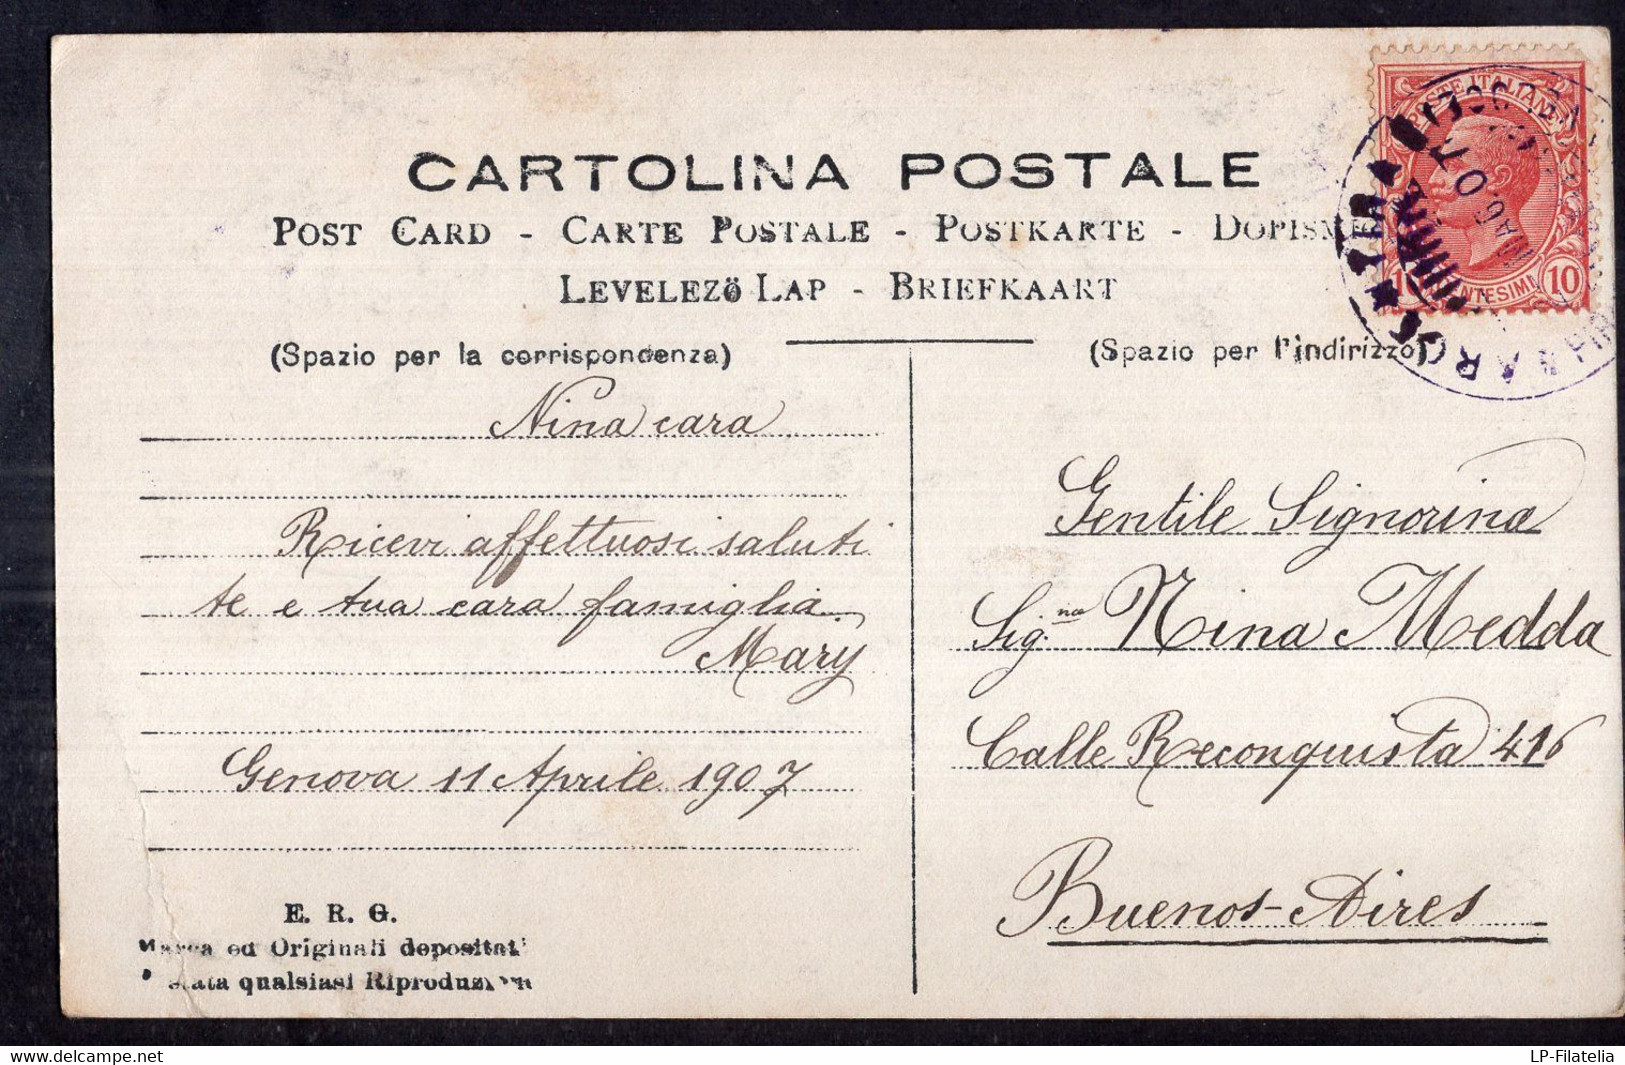 CARTOLINA POSTALE
POST CARD - CARTE POSTALE - POSTKARTE - DOPISNIC
LEVELEZÖ LAP - BRIEFKAART
(Spazio per la corrispondenza)
(Spazio per l'indirizzo)
POSTE ITALIANE
10 CENTESIMI 10
Nina cara
Ricevi affettuosi saluti
te e tua cara famiglia.
Mary
Genova 11 Aprile 1907
E. R. G.
Marca ed Originali depositati
qualsiasi Riproduzione
Gentile Signorina
Sig.na Nina Medda
Calle Reconquista 416
Buenos-Aires
LP-Filatelia